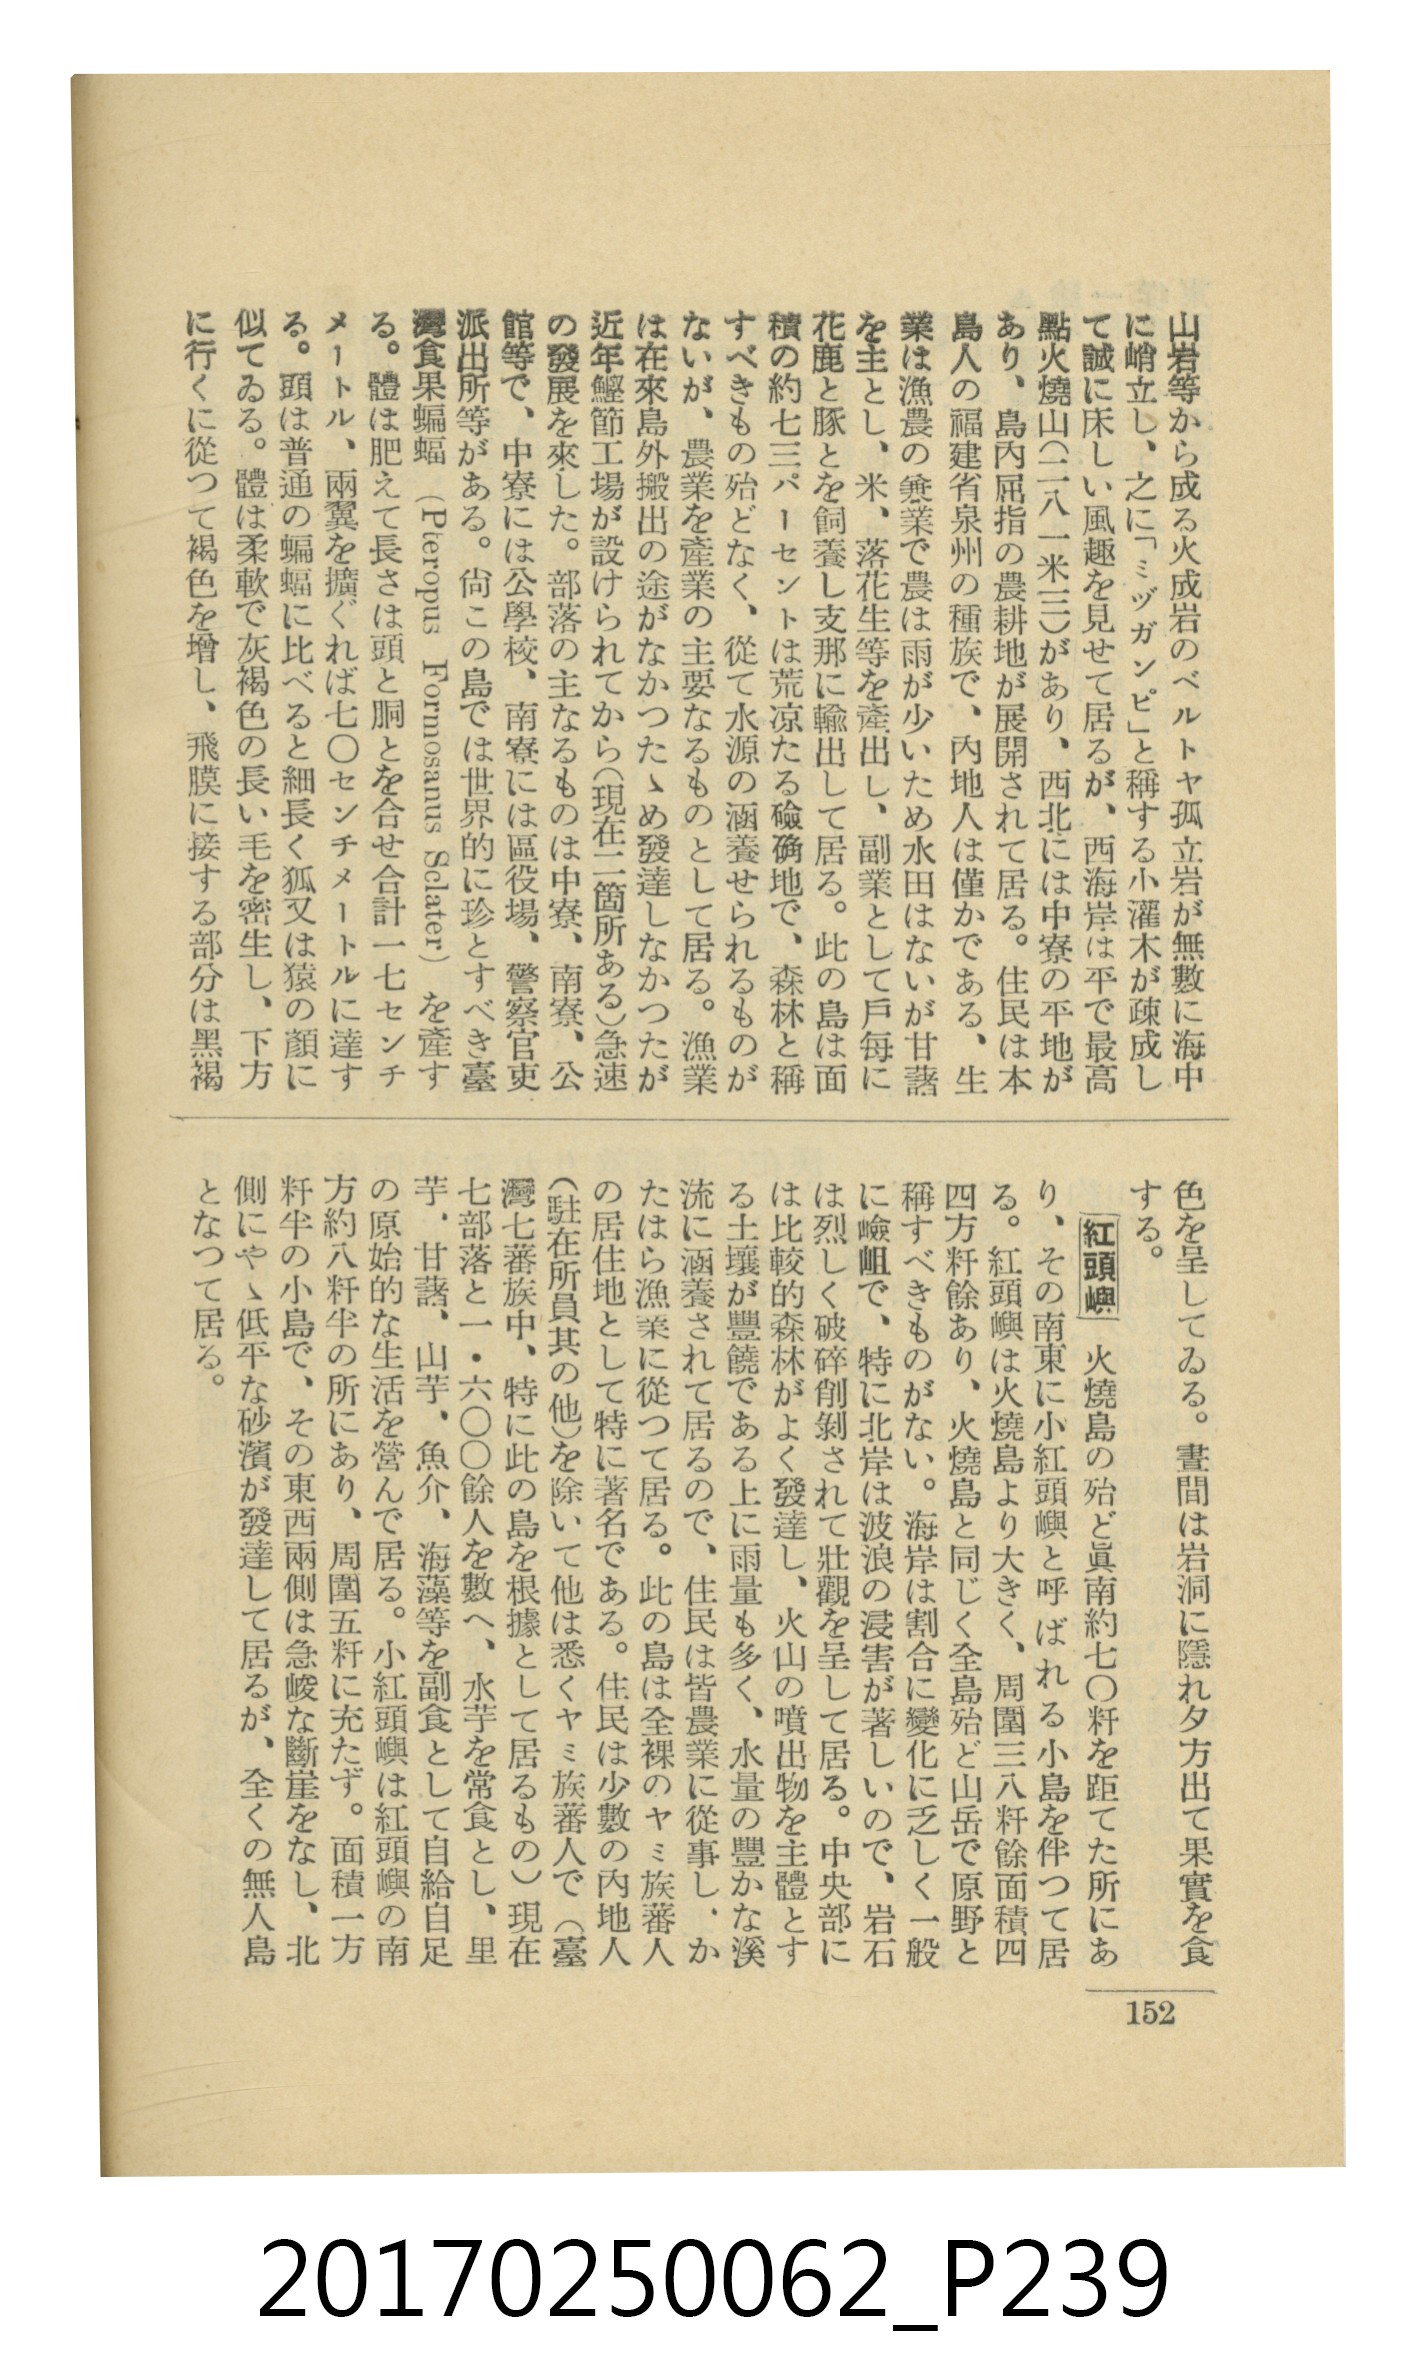 山岩等から成る火成岩のベルトヤ孤立岩が無數に海中
に峭立し、之に「ミヅガンピ」と稱する小灌木が疎成し
て誠に床しい風趣を見せて居るが、西海岸は平で最高
點火燒山(二八一米三)があり、西北には中寮の平地が
あり、島內屈指の農耕地が展開されて居る。住民は本
島人の福建省泉州の種族で、內地人は僅かである、生
業は漁農の兼業で農は雨が少いため水田はないが甘藷
を主とし、米、落花生等を產出し、副業として戶每に
花鹿と豚とを飼養し支那に輸出して居る。此の島は面
積の約七三パーセントは荒凉たる磽确地で、森林と稱
すべきもの殆どなく、從て水源の涵養せられるものが
ないが、農業を產業の主要なるものとして居る。漁業
は在來島外搬出の途がなかつたゝめ發達しなかつたが
近年鰹節工場が設けられてから(現在二箇所ある)急速
の發展を來した。部落の主なるものは中寮、南寮、公
館等で、中寮には公學校、南寮には區役場、警察官吏
派出所等がある。尙この島では世界的に珍とすべき臺
灣食果蝙蝠 (Pteropus Formosanus Sclater) を產す
る。體は肥えて長さは頭と胴とを合せ合計一七センチ
メートル、兩翼を擴ぐれば七〇センチメートルに達す
る。頭は普通の蝙蝠に比べると細長く狐又は猿の顏に
似てゐる。體は柔軟で灰褐色の長い毛を密生し、下方
に行くに從つて褐色を增し、飛膜に接する部分は黑褐
色を呈してゐる。晝間は岩洞に隱れ夕方出て果實を食
する。
紅頭嶼 火燒島の殆ど眞南約七〇粁を距てた所にあ
り、その南東に小紅頭嶼と呼ばれる小島を伴つて居
る。紅頭嶼は火燒島より大きく、周圍三八粁餘面積四
四方粁餘あり、火燒島と同じく全島殆ど山岳で原野と
稱すべきものがない。海岸は割合に變化に乏しく一般
に嶮岨で、特に北岸は波浪の浸害が著しいので、岩石
は烈しく破碎削剝されて壯觀を呈して居る。中央部に
は比較的森林がよく發達し、火山の噴出物を主體とす
る土壤が豐饒である上に雨量も多く、水量の豐かな溪
流に涵養されて居るので、住民は皆農業に從事し、か
たはら漁業に從つて居る。此の島は全裸のヤミ族蕃人
の居住地として特に著名である。住民は少數の內地人
(駐在所員其の他)を除いて他は悉くヤミ族蕃人で(臺
灣七蕃族中、特に此の島を根據として居るもの)現在
七部落と一・六〇〇餘人を數へ、水芋を常食とし、里
芋、甘藷、山芋、魚介、海藻等を副食として自給自足
の原始的な生活を營んで居る。小紅頭嶼は紅頭嶼の南
方約八粁半の所にあり、周圍五粁に充たず。面積一方
粁半の小島で、その東西兩側は急峻な斷崖をなし、北
側にやゝ低平な砂濱が發達して居るが、全くの無人島
となつて居る。
152
20170250062_P239